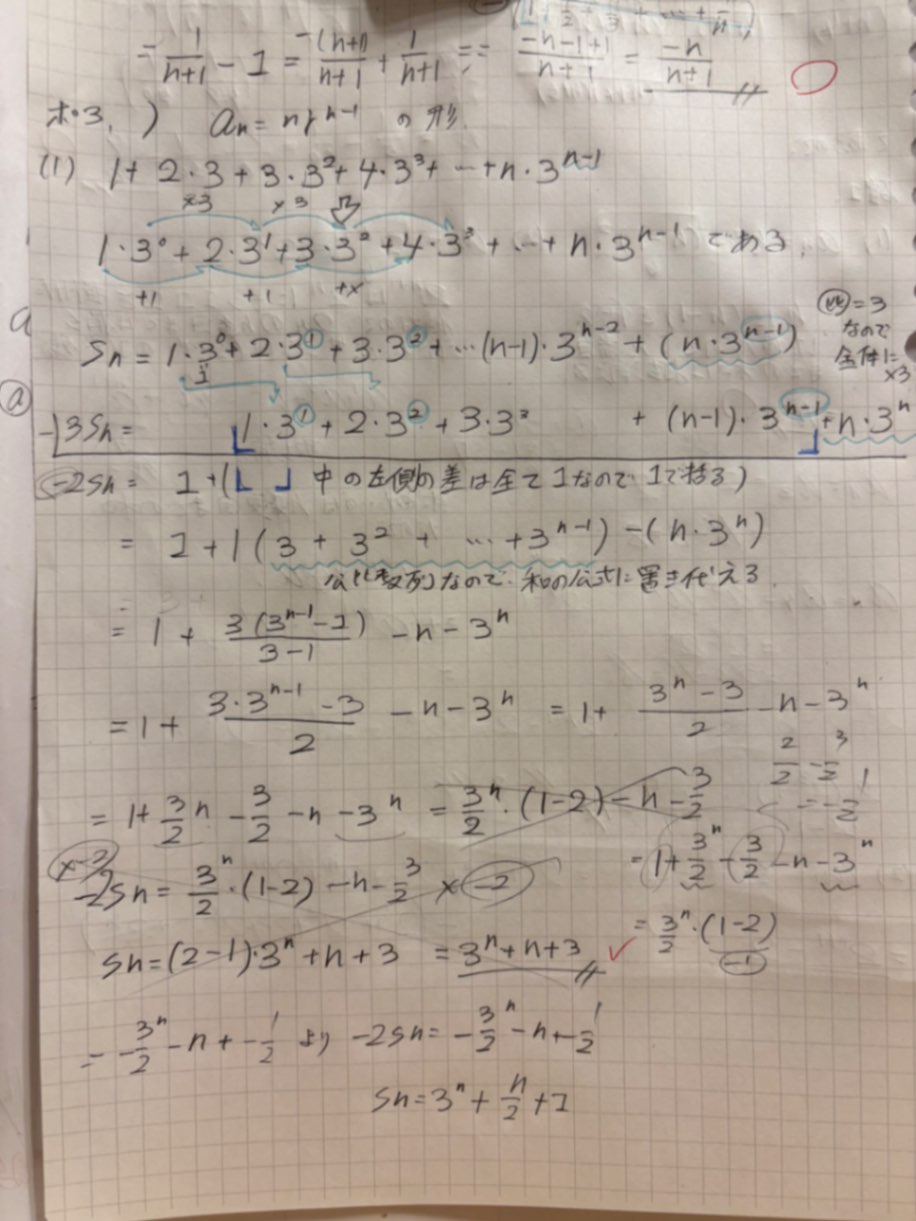 = 1/(n+1) - 1 = -(n+1)/(n+1) + 1/(n+1) == (-n-1+1)/(n+1) = -n/(n+1)
ホ・3. ) an = nr^(n-1) の形.
(1) 1+ 2・3 + 3・3^2 + 4・3^3 + … + n・3^(n-1)
×3 ×3
1・3^0 + 2・3^1 + 3・3^2 + 4・3^3 + … + n・3^(n-1) である.
+1 +1 +x
Sn = 1・3^0 + 2・3^① + 3・3^② + …(n-1)・3^(n-2) + (n・3^(n-1))
1
比=3
なので
全体に
×3
-) 3Sn = 1・3^① + 2・3^② + 3・3^3 + (n-1)・3^(n-1) + n・3^n
-2Sn = 1+(「 」中の左側の差は全て1なので1で括る)
= 1+1(3 + 3^2 + … + 3^(n-1)) -(n・3^n)
公比数列なので. 和の公式に置き代える
= 1 + 3(3^(n-1) -1)/(3-1) - n - 3^n
= 1 + (3・3^(n-1) -3)/2 - n - 3^n = 1+ (3^n - 3)/2 - n - 3^n
2/2 - 3/2
= -1/2
= 1+ 3/2^n - 3/2 - n - 3^n = 3^n/2・(1-2) - n - 3/2
= 1+ 3^n/2 - 3/2 - n - 3^n
×-2
-2Sn = 3^n/2・(1-2) - n - 3/2 ×(-2)
= 3^n/2・(1-2)
-1
Sn = (2-1)・3^n + n + 3 = 3^n + n + 3
= -3^n/2 - n + -1/2 より -2Sn = -3^n/2 - n + -1/2
Sn = 3^n + n/2 + 1